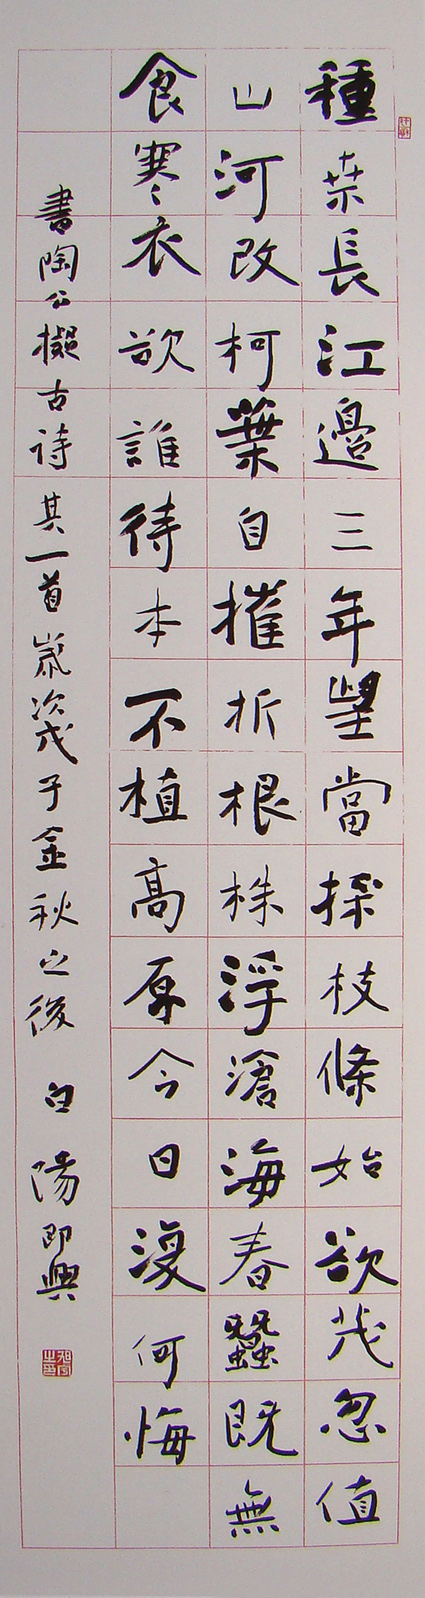 種桒長江邊三年望當採枝條始欲茂忽值
山河改柯葉自摧折根株浮滄海春蠶既無
食寒衣欲誰待本不植高原今日復何悔
書陶公擬古诗其一首歲次戊子金秋之後 白陽即興